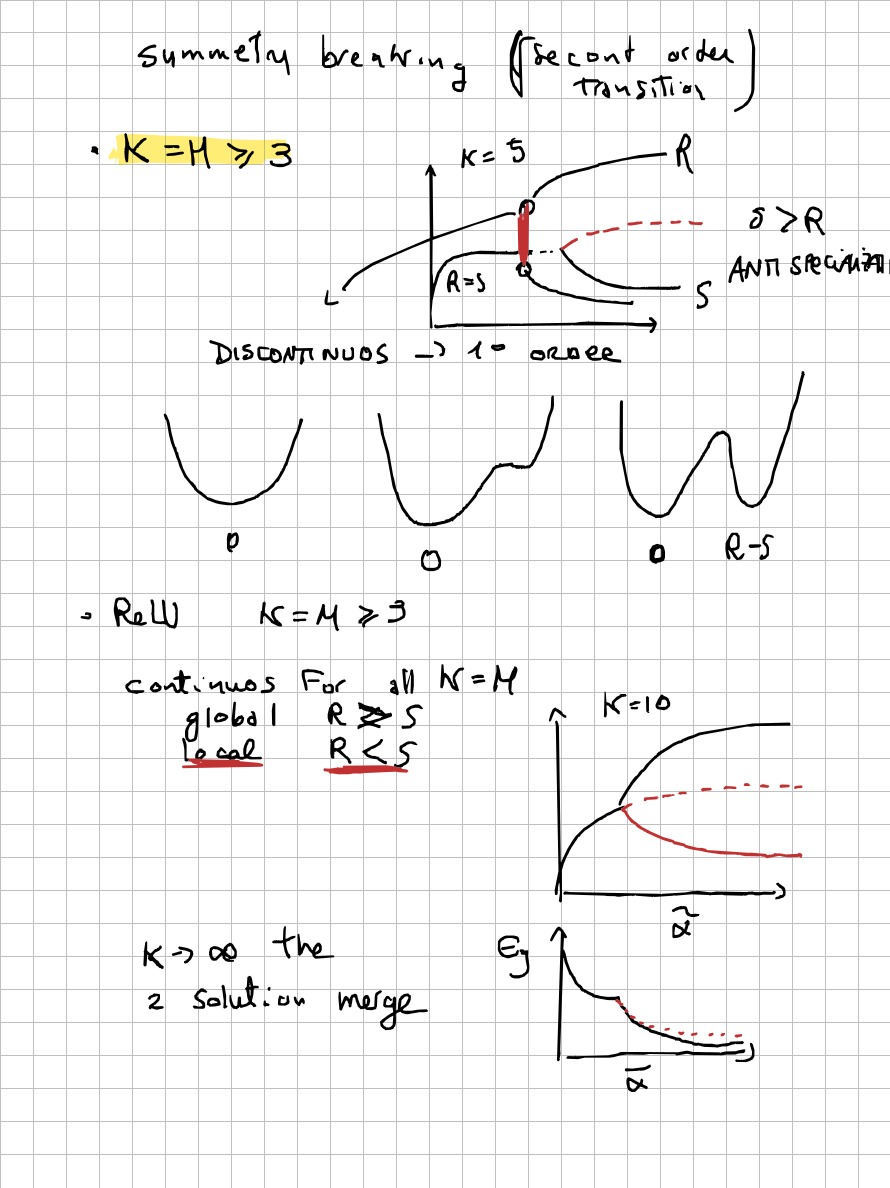 Symmetry breaking (second order
transition)
• K = M ⩾ 3
K = 5
R
S > R
ANTI SPECIALIZATI
R=S
S
L
DISCONTINUOS → 1° ORDER
0
0
0 R-S
• ReLU K = M ⩾ 3
continuos For all K = M
global R ⩾ S
local R < S
K=10
α̃
K → ∞ the
2 solution merge
Eg
α̃